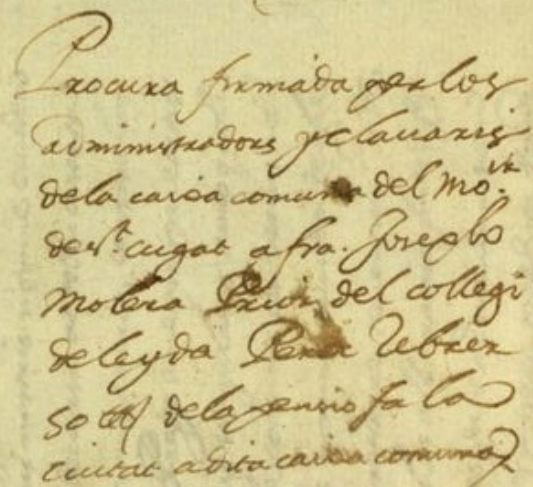 Procura firmada per los
administradors y clavaris
dela caixa comuna del mo.ir
de St. cugat a fra. Joseph
Molera Prior del collegi
de leyda Pera rebrer
50 ll delapensio fa la
ciutat a dita caixa comuna